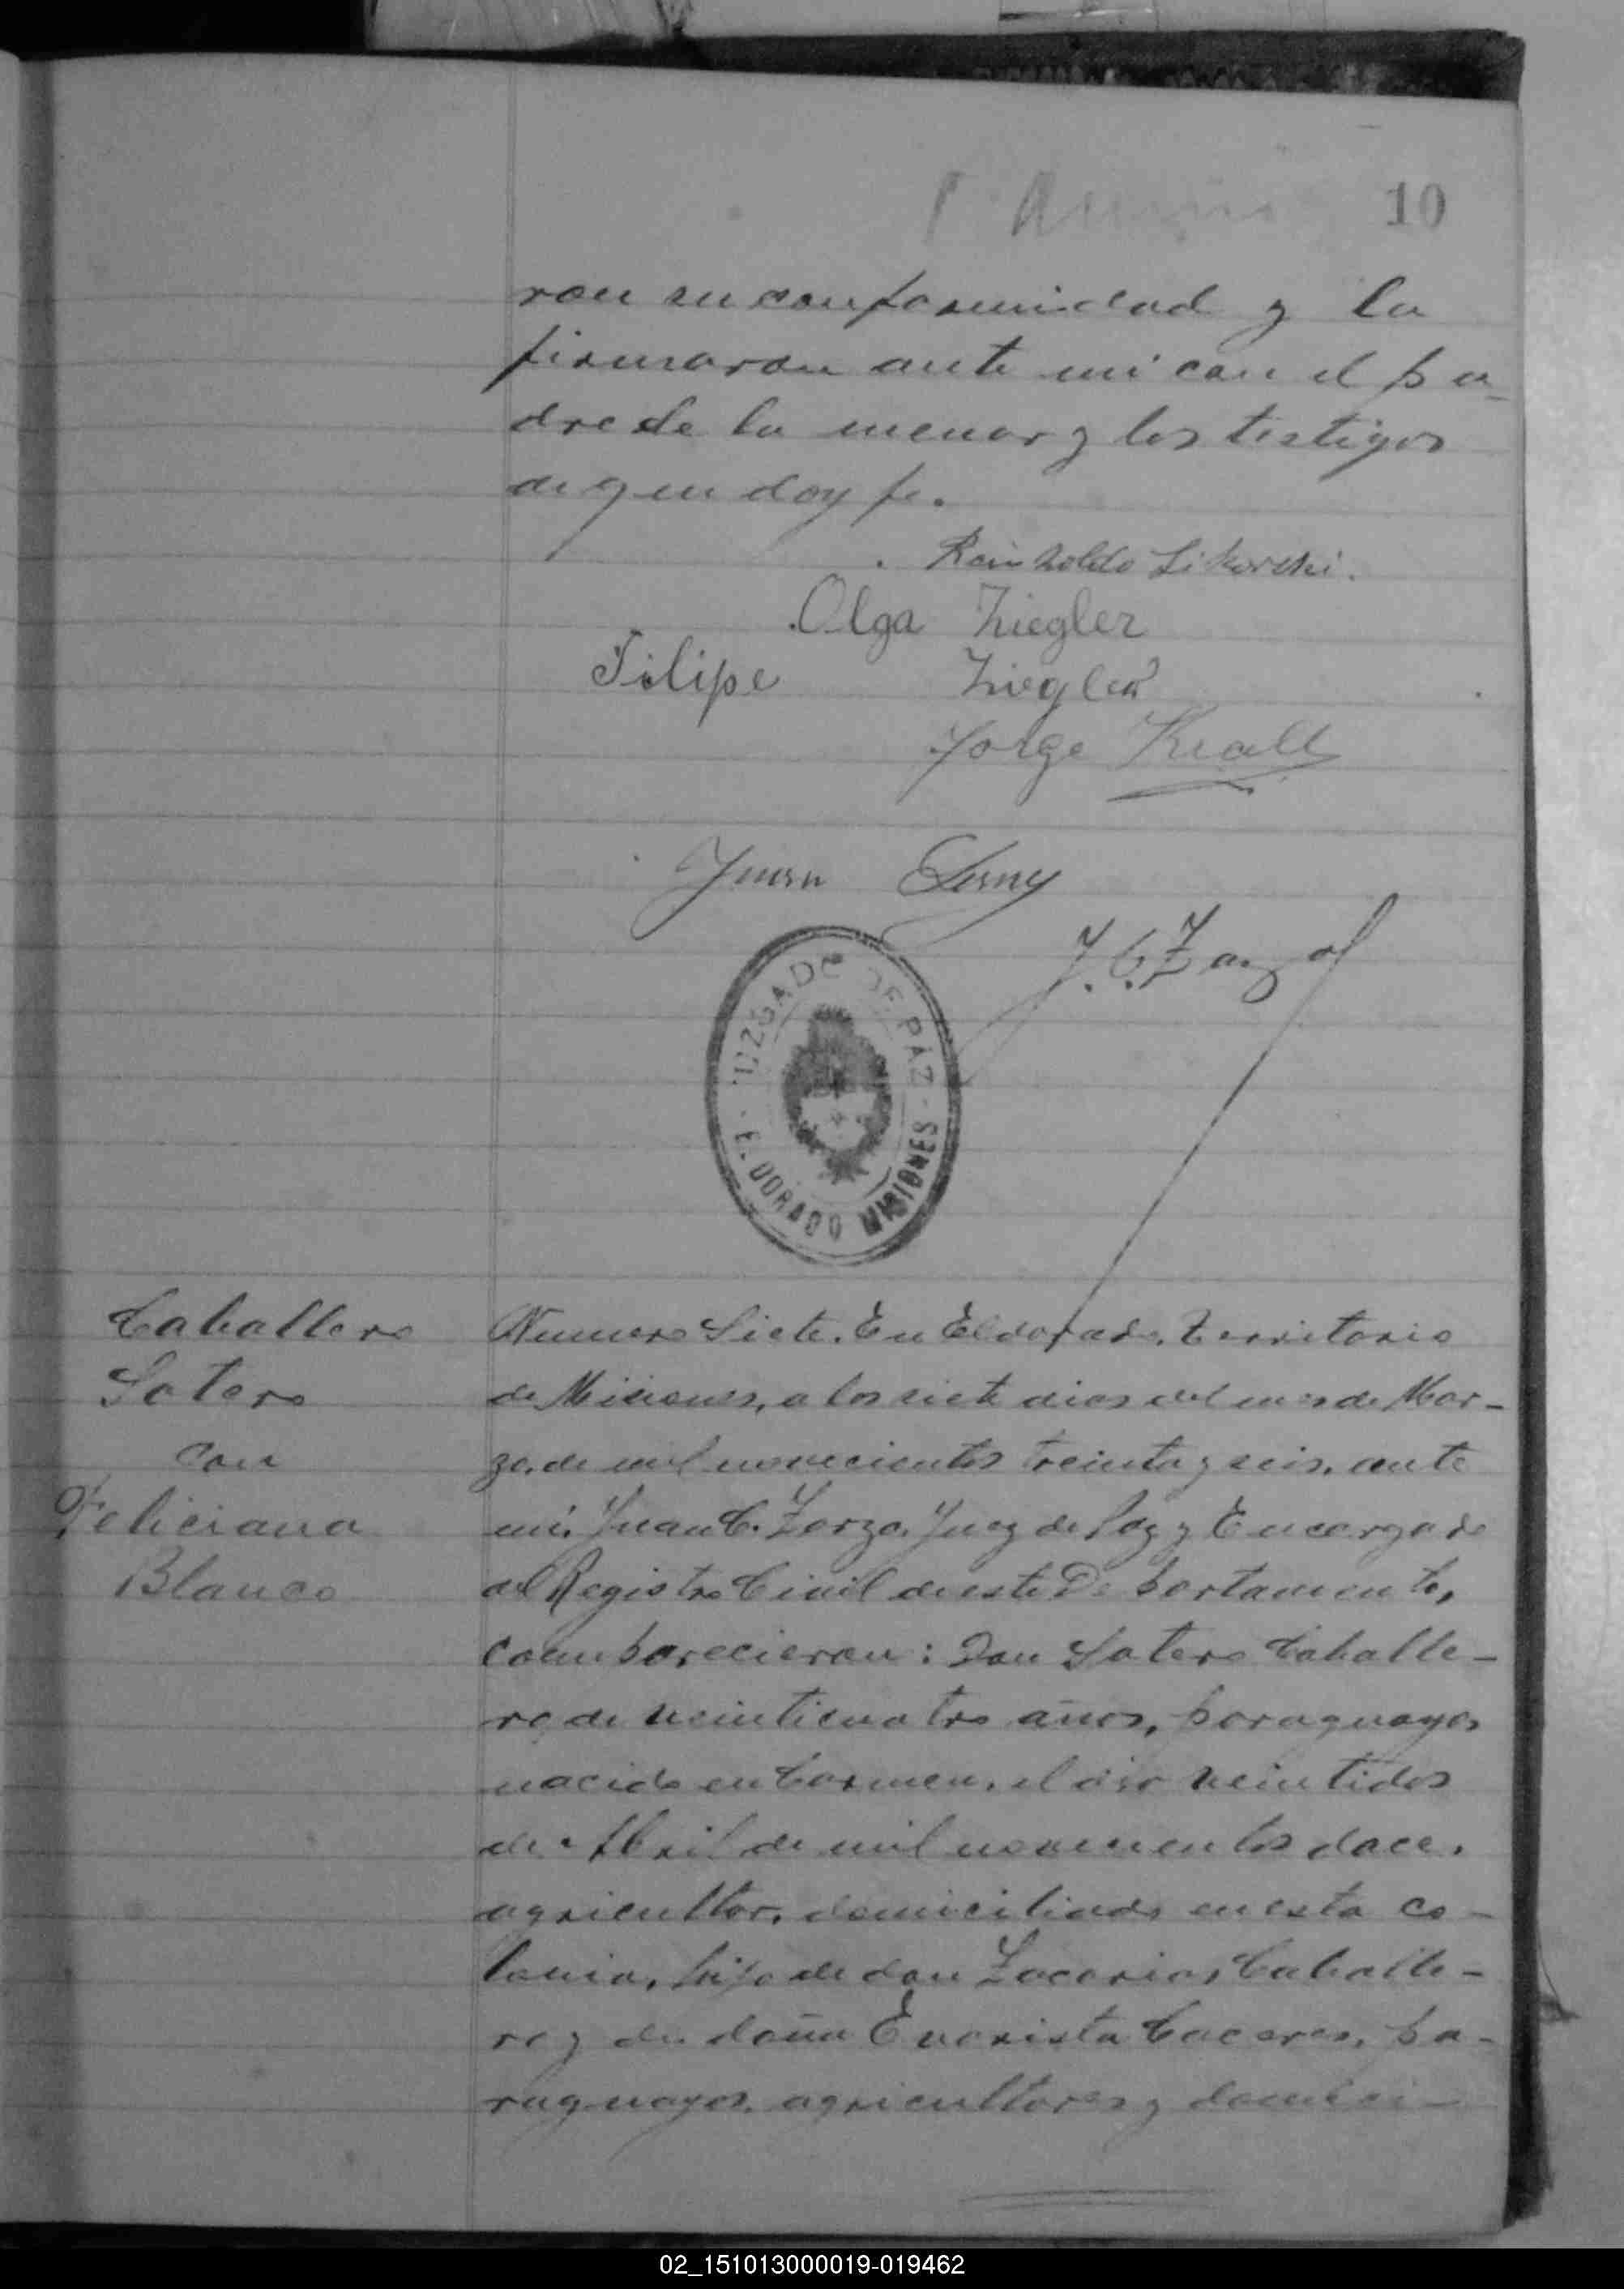 10
ron su conformidad y la
firmaron ante mi con el pa-
dre de la menor y los testigos
de que doy fe.
Reinholdo Sikorski.
Olga Ziegler
Filipe Ziegler
Jorge Krall
Juan
J. C. Zarza
JUZGADO DE PAZ
ELDORADO MISIONES
Caballero
Sotero
con
Feliciana
Blanco
Numero Siete. En Eldorado, Territorio
de Misiones, a los siete dias del mes de Mar-
zo, de mil novecientos treinta y seis, ante
mi, Juan C. Zarza, Juez de Paz y Encargado
del Registro Civil de este Departamento,
comparecieron: Don Sotero Caballe-
ro, de veinticuatro años, paraguayo,
nacido en Carmen, el dia veintidos
de Abril de mil novecientos doce,
agricultor, domiciliado en esta co-
lonia, hijo de don Zacarias Caballe-
ro y de doña Evarista Caceres, pa-
raguayos, agricultores y domici-
02_151013000019-019462